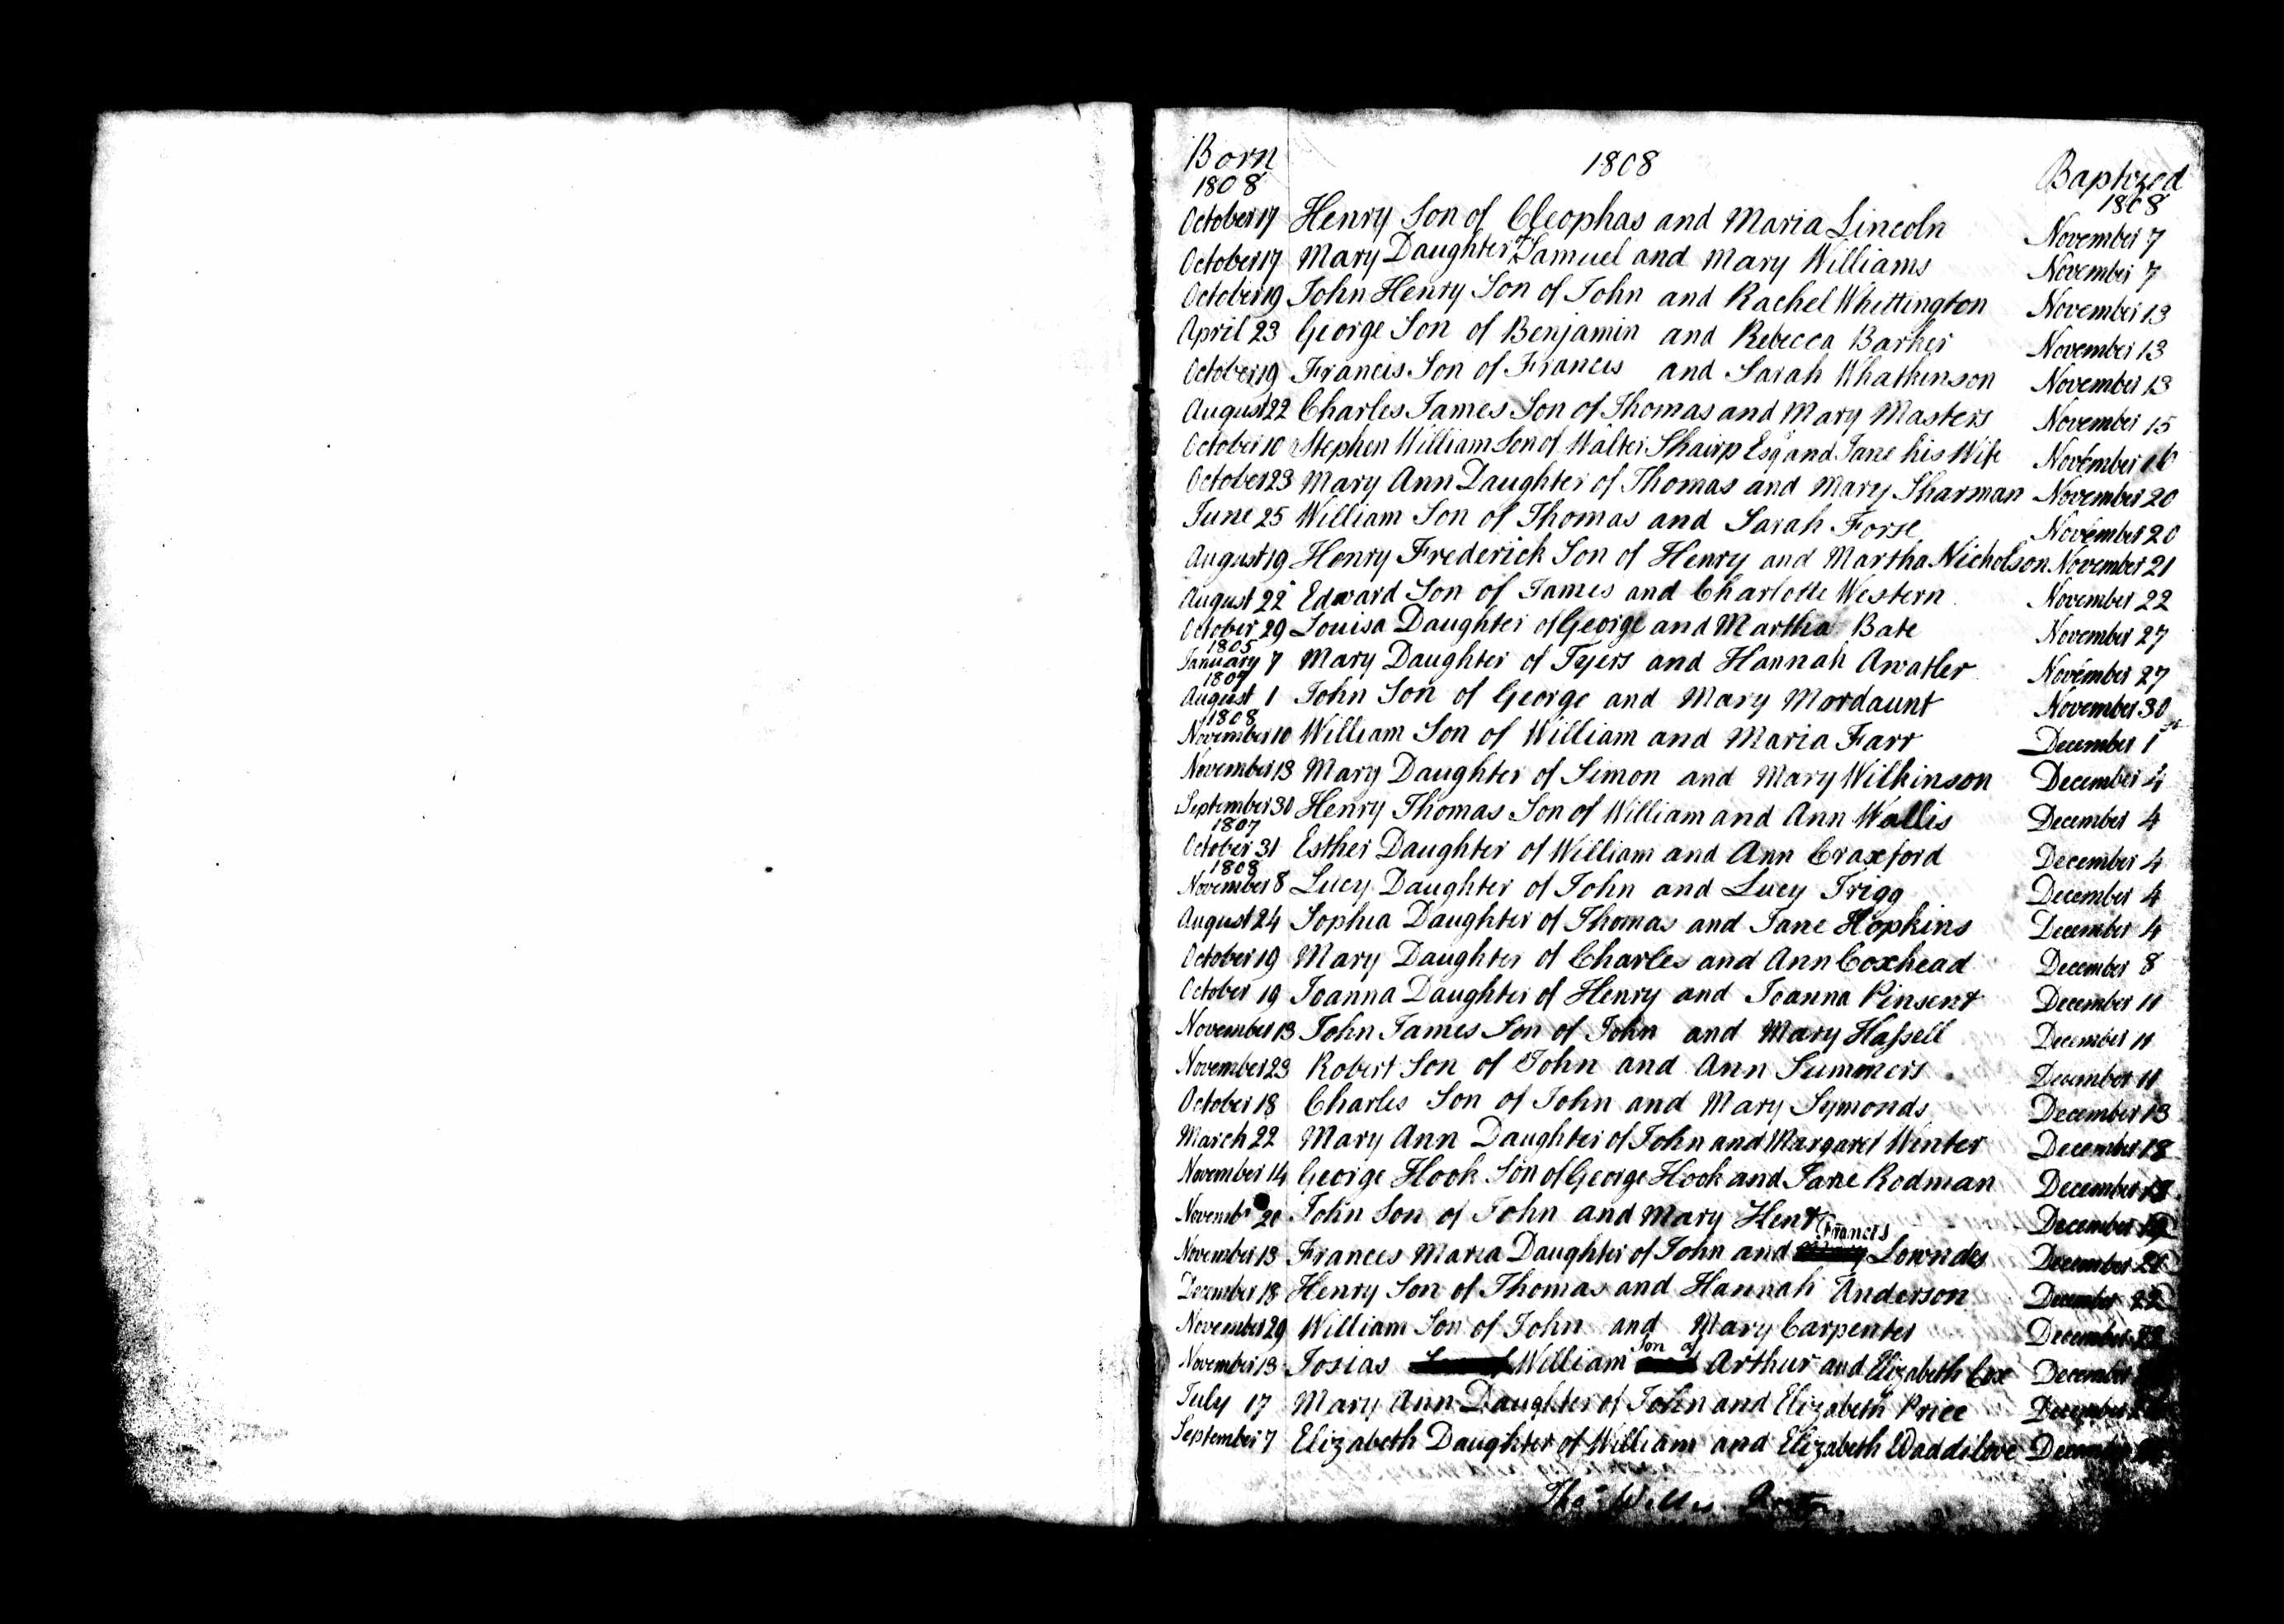 Born 1808 Baptized
1808 1808
October 17 Henry Son of Cleophas and Maria Lincoln November 7
October 17 Mary Daughter of Samuel and Mary Williams November 7
October 19 John Henry Son of John and Rachel Whittington November 13
April 23 George Son of Benjamin and Rebecca Barker November 13
October 19 Francis Son of Francis and Sarah Whatkinson November 13
August 22 Charles James Son of Thomas and Mary Masters November 15
October 10 Stephen William Son of Walter Shairp Esqr and Jane his Wife November 16
October 23 Mary Ann Daughter of Thomas and Mary Sharman November 20
June 25 William Son of Thomas and Sarah Forse November 20
August 19 Henry Frederick Son of Henry and Martha Nicholson November 21
August 22 Edward Son of James and Charlotte Western November 22
October 29 Louisa Daughter of George and Martha Bate November 27
1805
January 7 Mary Daughter of Tyers and Hannah Awatler November 27
1807
August 1 John Son of George and Mary Mordaunt November 30
1808
November 10 William Son of William and Maria Farr December 1st
November 13 Mary Daughter of Simon and Mary Wilkinson December 4
September 30 Henry Thomas Son of William and Ann Wallis December 4
1807
October 31 Esther Daughter of William and Ann Craxford December 4
1808
November 8 Lucy Daughter of John and Lucy Trigg December 4
August 24 Sophia Daughter of Thomas and Jane Hopkins December 4
October 19 Mary Daughter of Charles and Ann Coxhead December 8
October 19 Joanna Daughter of Henry and Joanna Pinsent December 11
November 13 John James Son of John and Mary Hassell December 11
November 23 Robert Son of John and Ann Summers December 11
October 18 Charles Son of John and Mary Symonds December 13
March 22 Mary Ann Daughter of John and Margaret Winter December 18
November 14 George Hook Son of George Hook and Jane Rodman December 18
20 John Son of John and Mary Hent December
Frances
November 13 Frances Maria Daughter of John and Lowndes December
December 18 Henry Son of Thomas and Hannah Anderson December 22
November 29 William Son of John and Mary Carpenter December
Son of
November 13 Josias William Arthur and Elizabeth Cox December
July 17 Mary Ann Daughter of John and Elizabeth Price December
September 7 Elizabeth Daughter of William and Elizabeth Waddilove December
Thos Willis